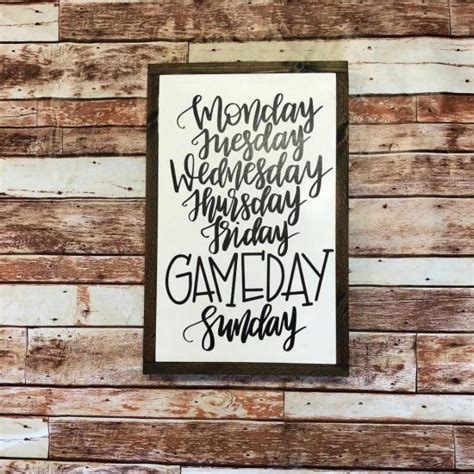 Monday
Tuesday
Wednesday
Thursday
Friday
GAMEDAY
Sunday